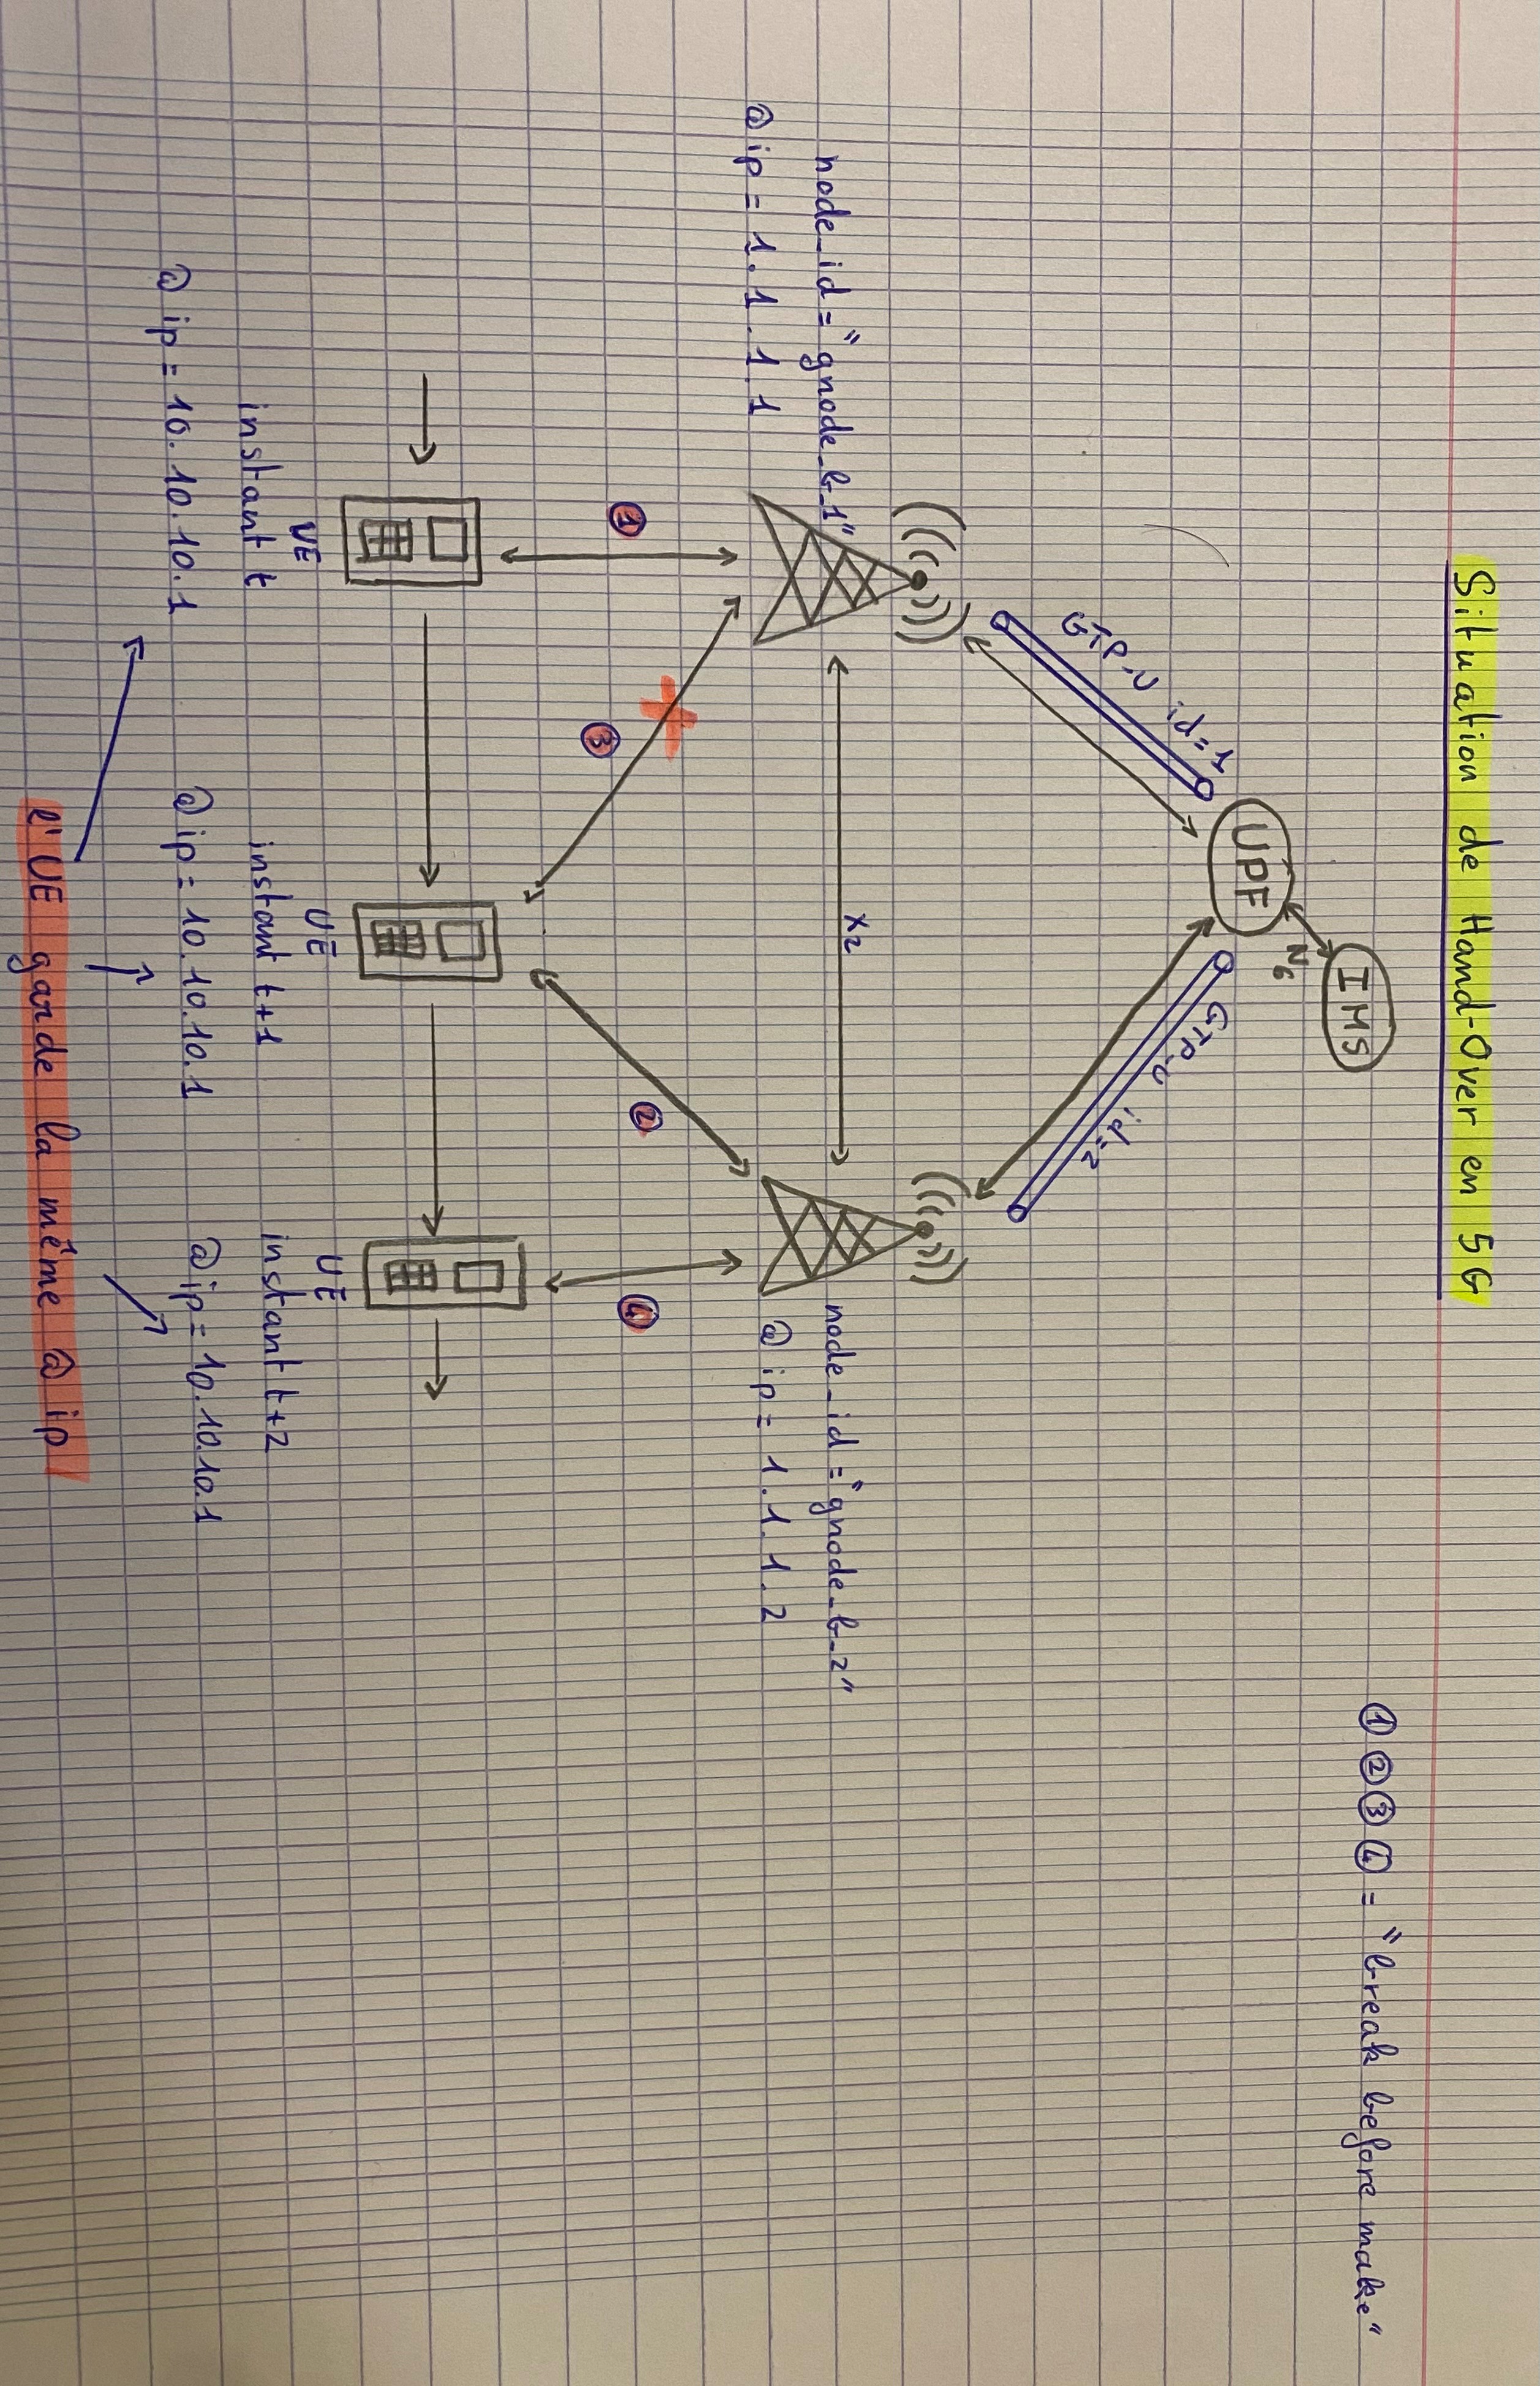 Situation de Hand-Over en 5G
① ② ③ ④ = "break before make"
IMS
N6
UPF
GTP-U id=1
GTP-U id=2
node_id = "gnode_b_1"
@ip = 1.1.1.1
X2
node_id = "gnode_b_2"
@ip = 1.1.1.2
①
③
②
④
UE
instant t
@ip = 10.10.10.1
UE
instant t+1
@ip = 10.10.10.1
UE
instant t+2
@ip = 10.10.10.1
l'UE garde la même @ip